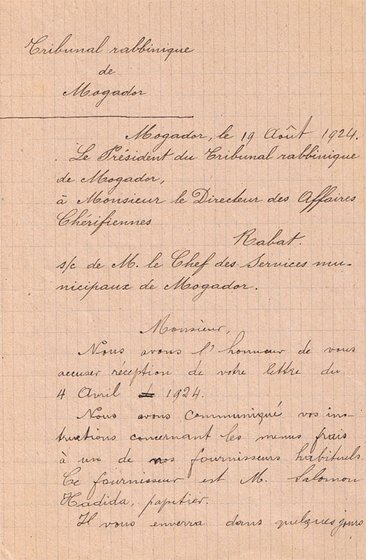 Tribunal rabbinique
de
Mogador
Mogador, le 19 Août 1924.
Le Président du Tribunal rabbinique
de Mogador,
à Monsieur le Directeur des Affaires
Chérifiennes
Rabat.
s/c de M. le Chef des Services mu-
nicipaux de Mogador.
Monsieur,
Nous avons l'honneur de vous
accuser réception de votre lettre du
4 Avril 1924.
Nous avons communiqué vos ins-
tructions concernant les menus frais
à un de nos fournisseurs habituels.
Ce fournisseur est M. Salomon
Hadida, papetier.
Il vous enverra dans quelques jours